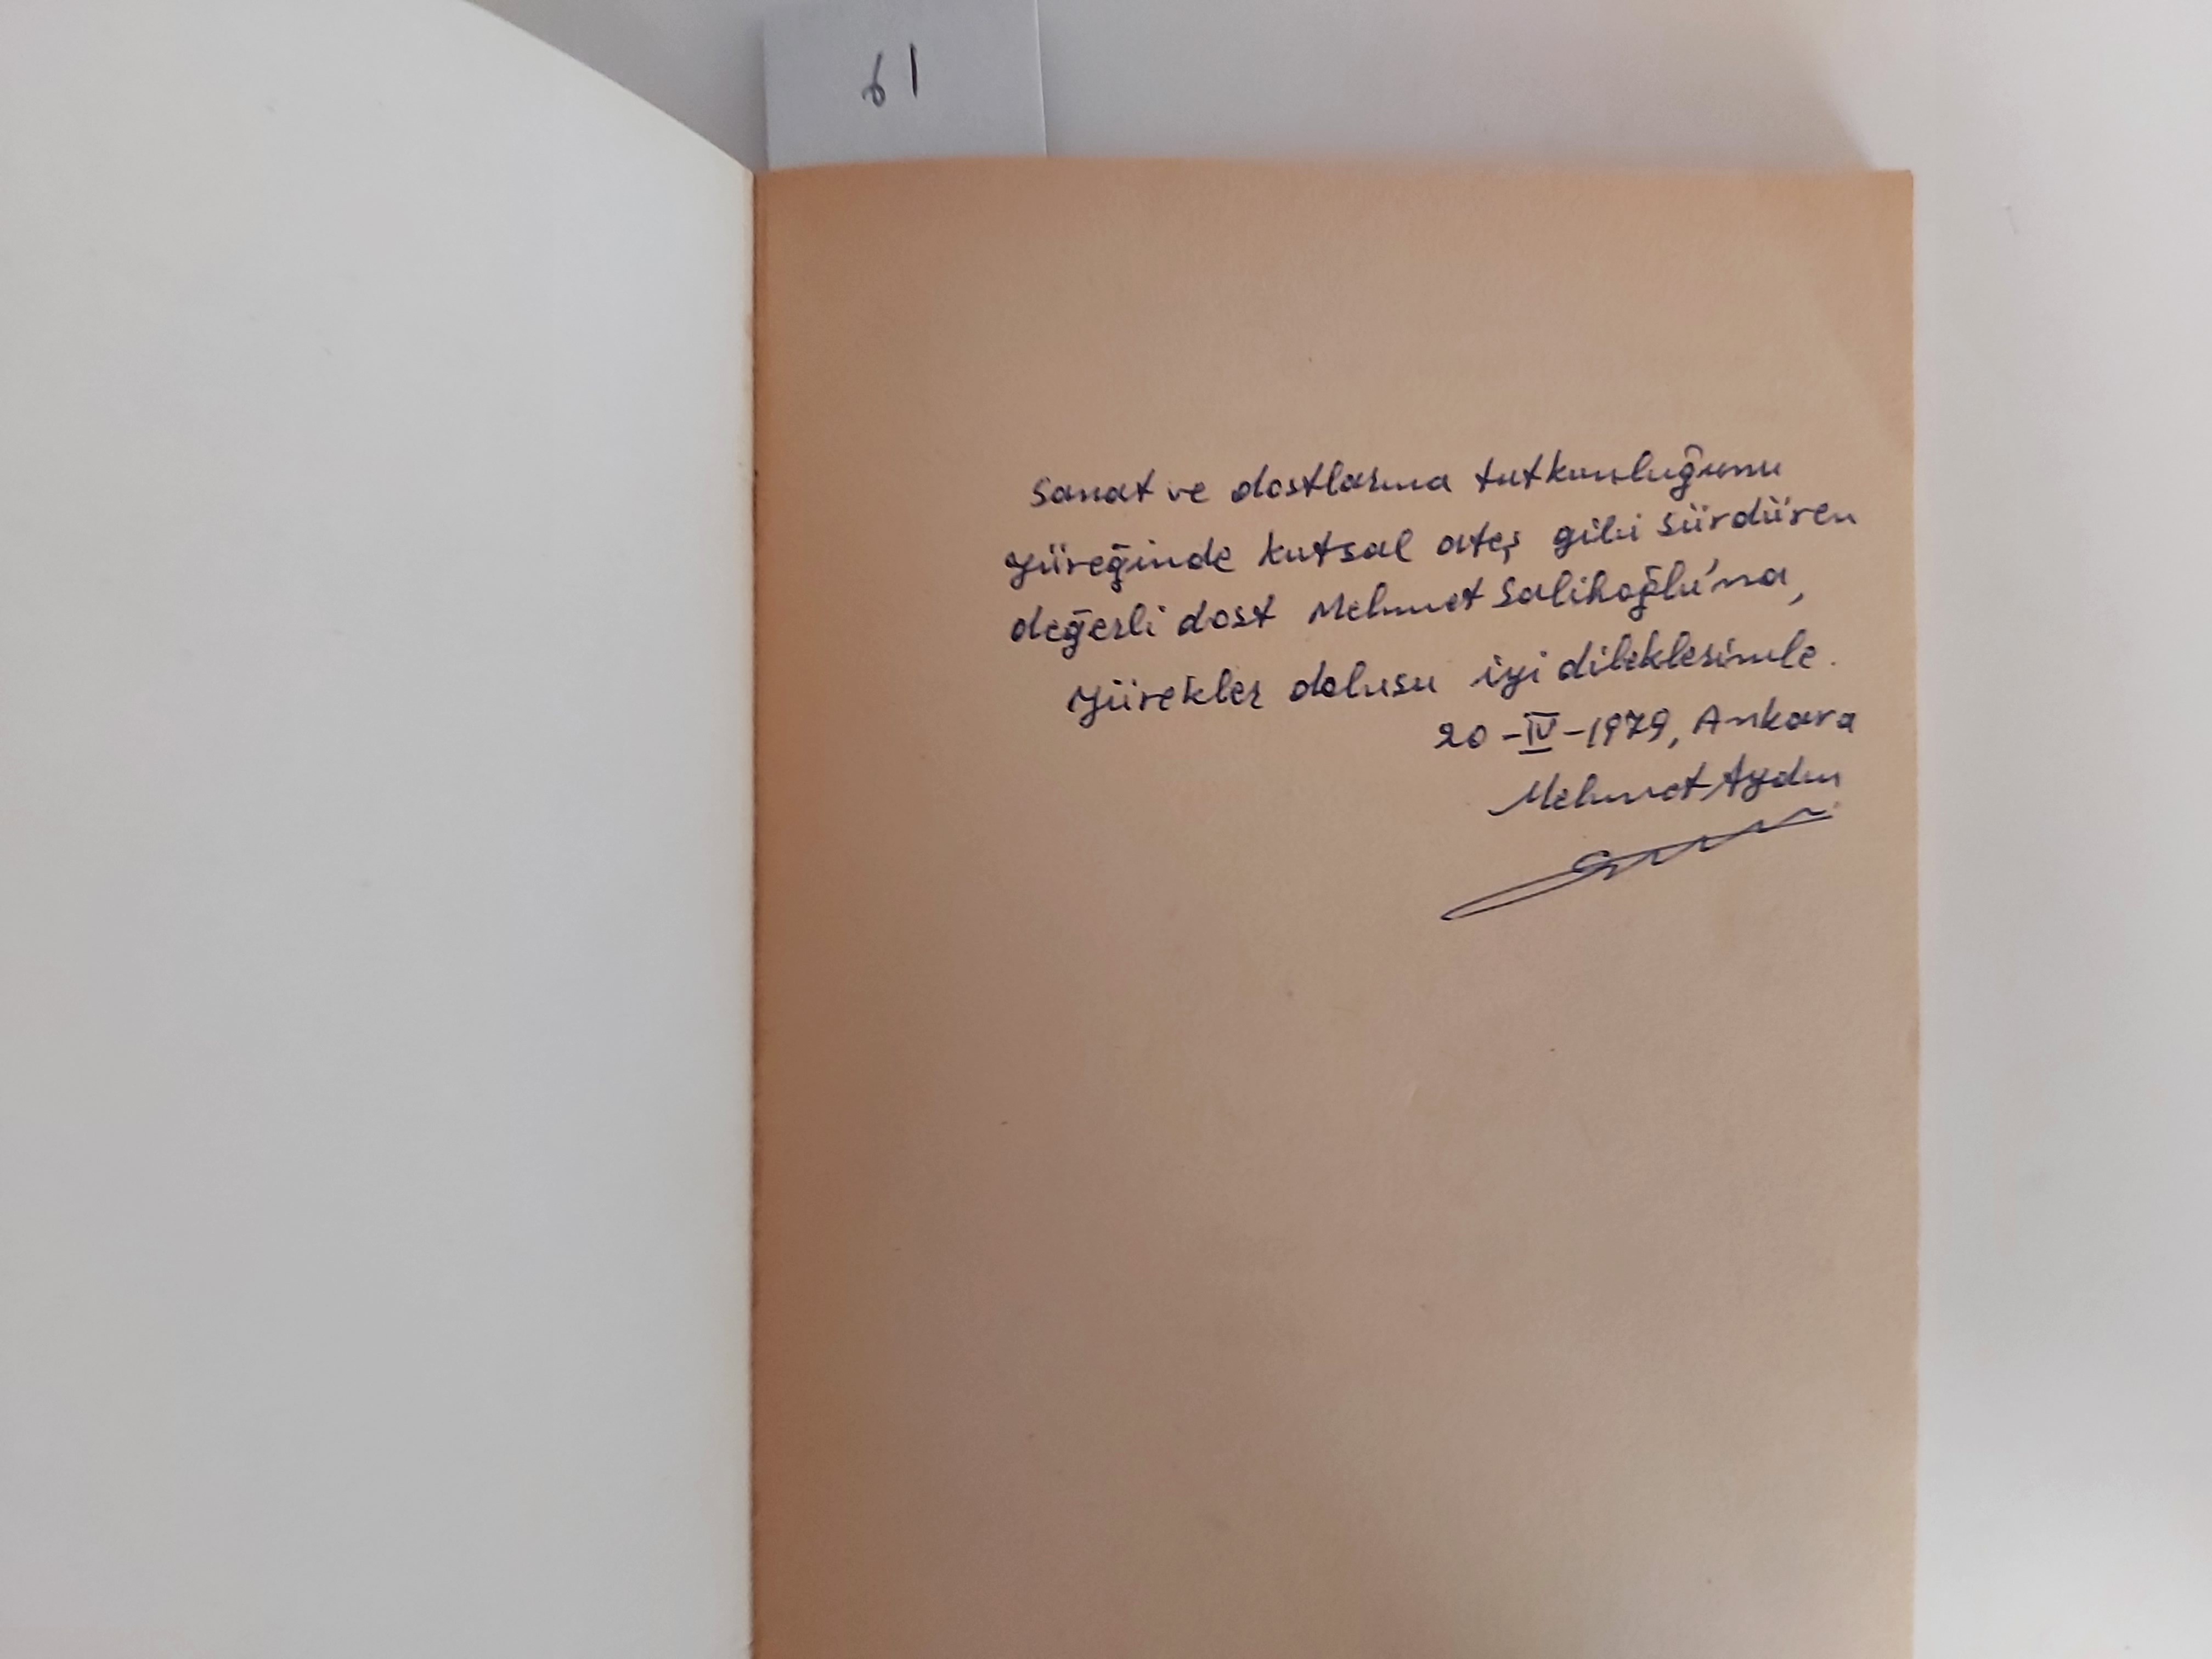 61
Sanat ve dostlarına tutkunluğunu
yüreğinde kutsal ateş gibi sürdüren
değerli dost Mehmet Salihoğlu'na,
yürekler dolusu iyi dileklerimle.
20-IV-1979, Ankara
Mehmet Aydın